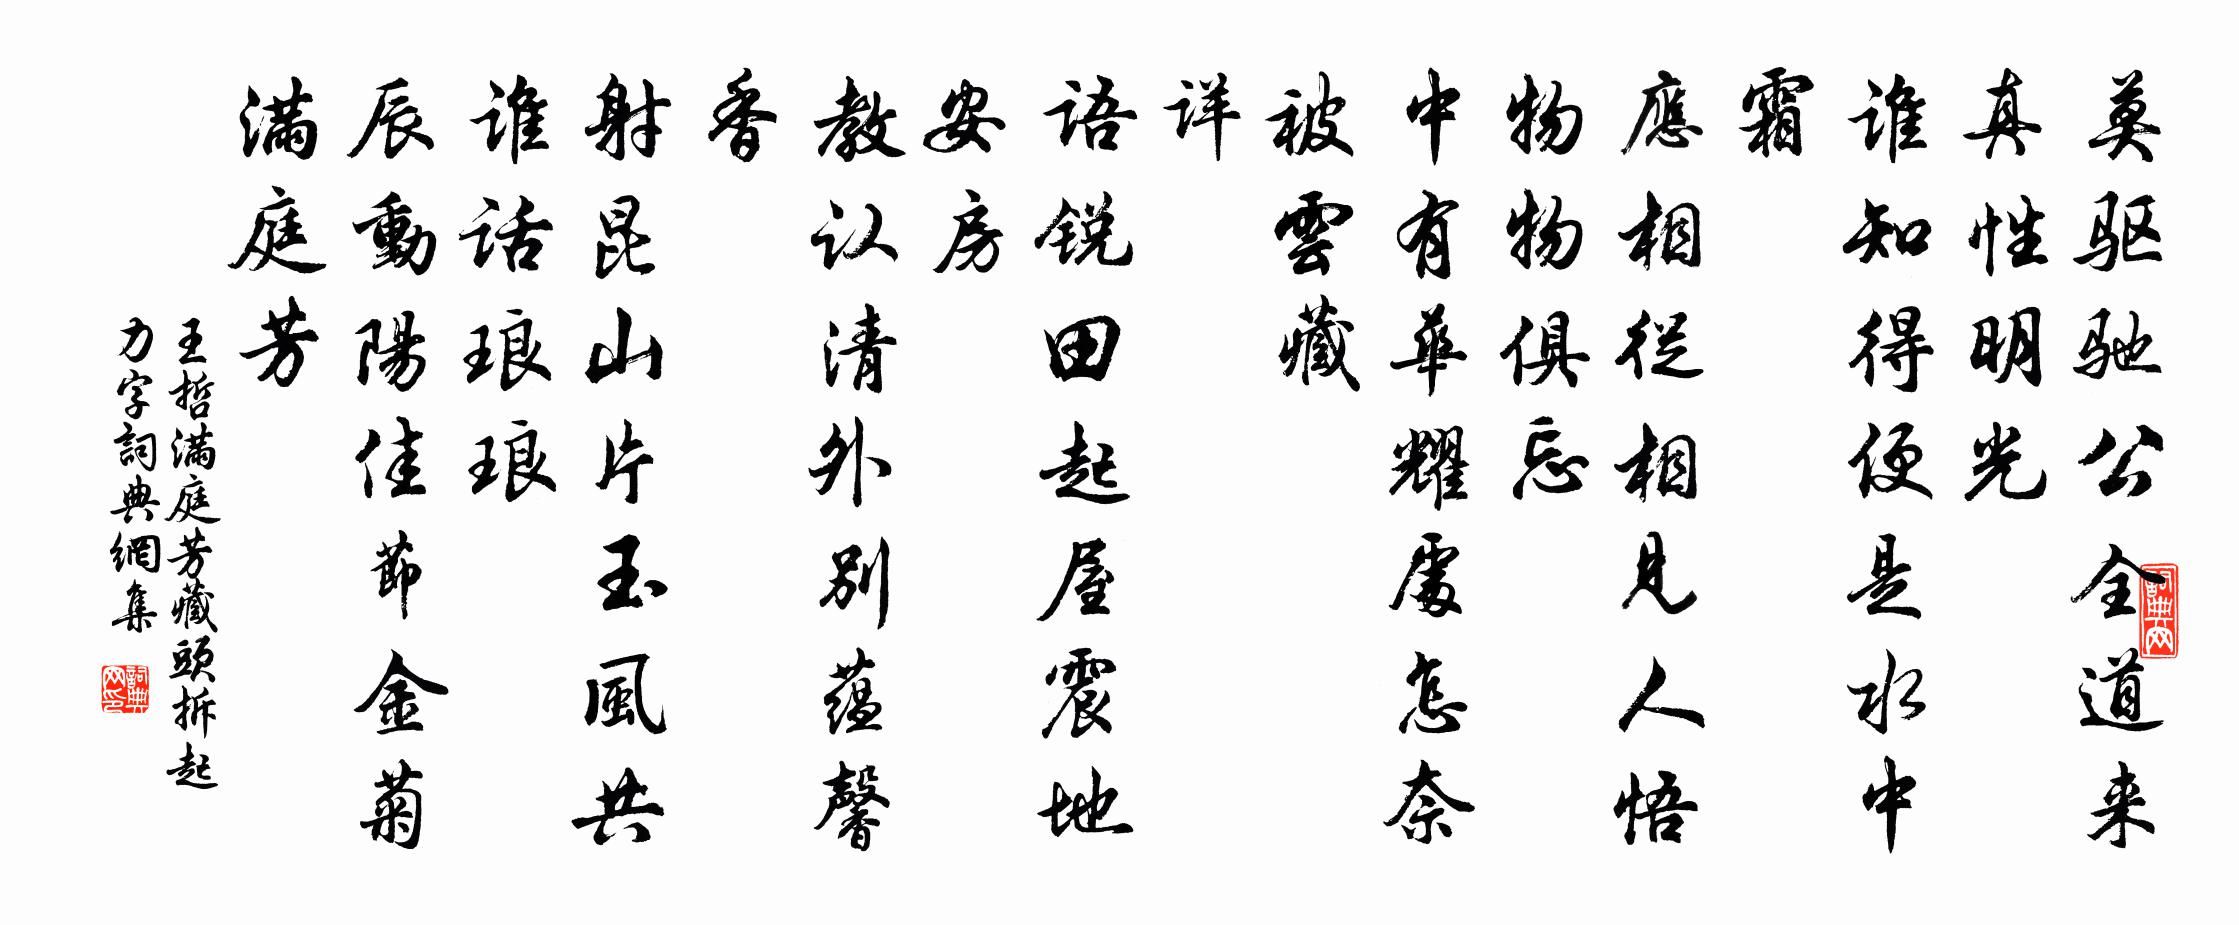 莫驱驰公全道来
真性明光
谁知得便是水中
霜
應相從相見人悟
物物俱忘
中有華耀處怎奈
被雲藏
详
语锐田起屋震地
安房
教认清外别蕴馨
香
射昆山片玉風共
谁话琅琅
辰動陽佳節金菊
满庭芳
王哲满庭芳藏頭拆起
力字詞典網集
詞典网
詞典网印